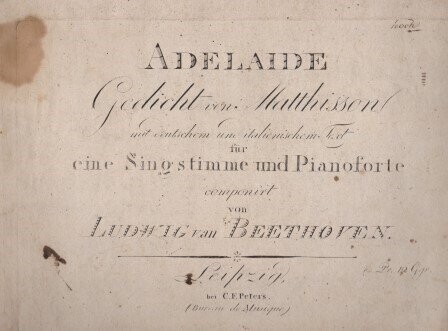 ADELAIDE
Gedicht von Matthisson
mit deutschem und italienischem Text
für
eine Singstimme und Pianoforte
componirt
von
LUDWIG van BEETHOVEN.
Leipzig,
bei C. F. Peters.
(Bureau de Musique)